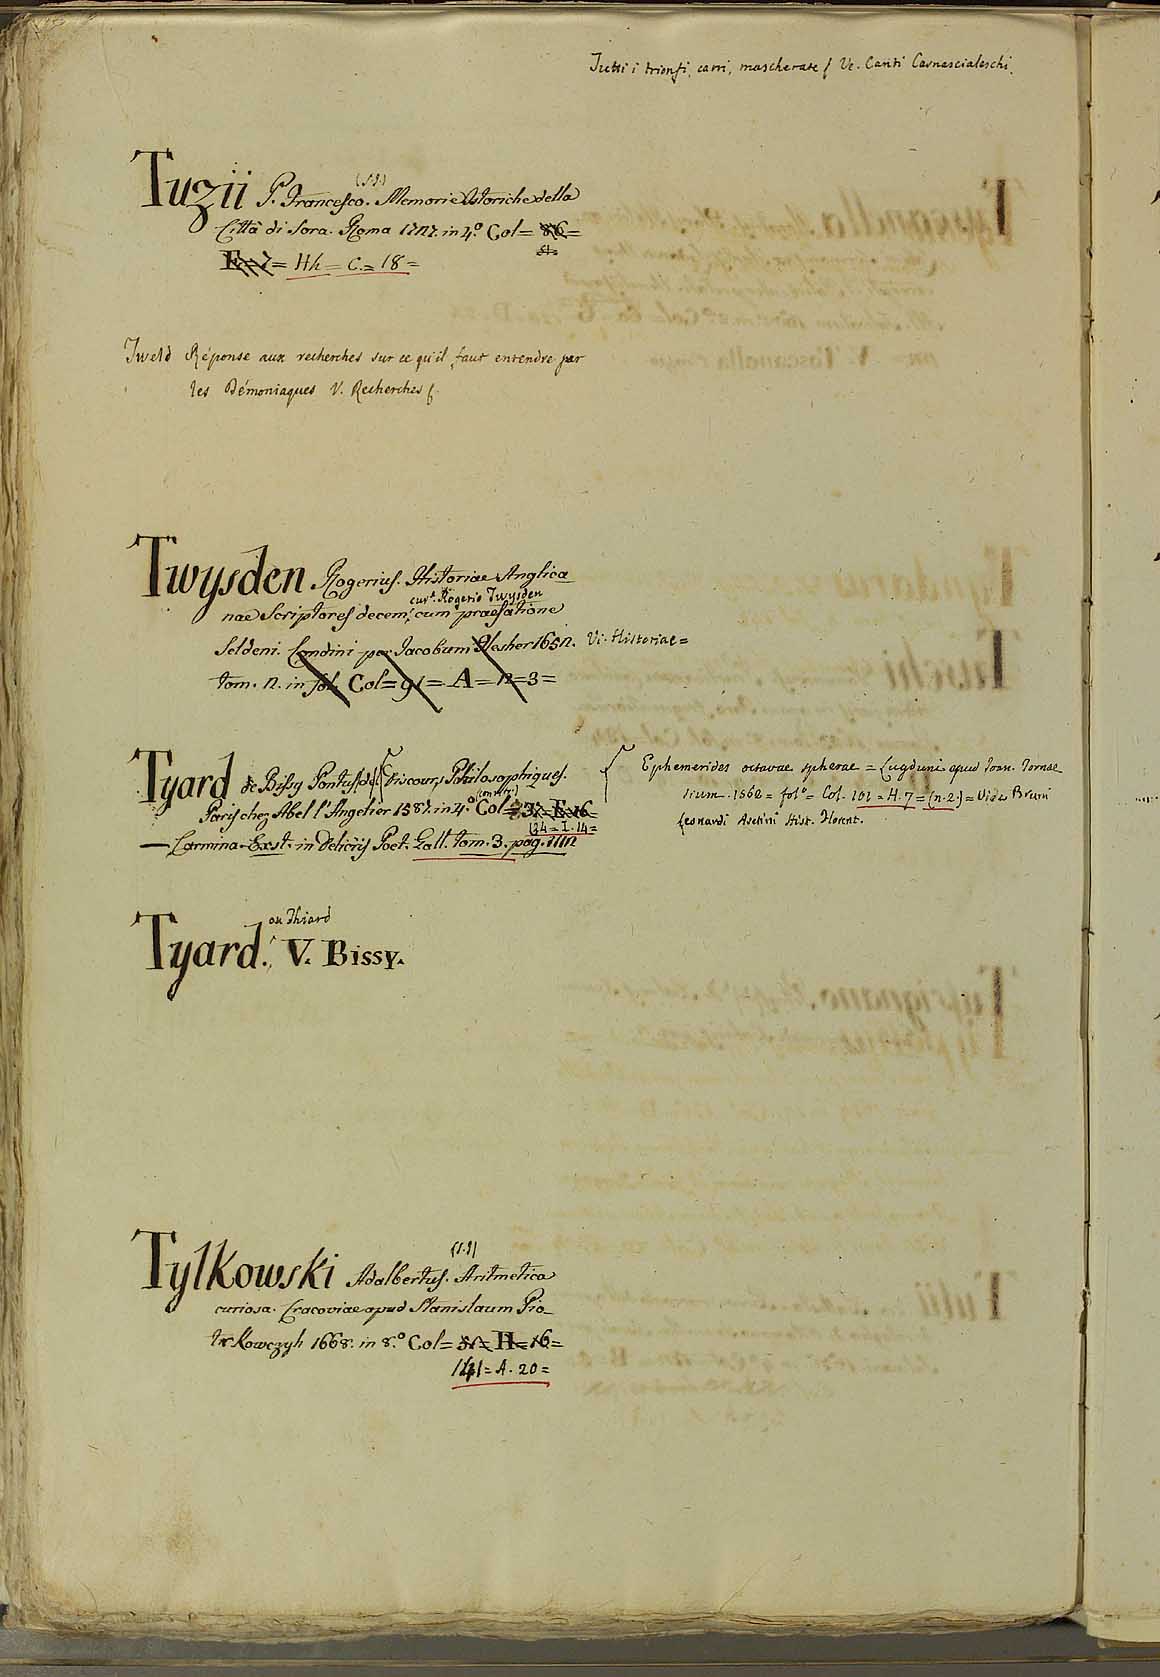 Tutti i trionfi, carri, mascherate / Ve. Canti Carnascialeschi.
Tuzii P. Francesco. (S.I.) Memorie Istoriche della
Città di Sora. Roma 1727. in 4.° Col= 86=
51=
E=7= Hh= C.= 18=
Tweld Réponse aux recherches sur ce qu'il faut entendre par
les Démoniaques V. Recherches
Twysden Rogerius. Historiae Anglica
curᵗ Rogerio Twysden
nae Scriptores decem, cum praefatione
Seldeni. Londini per Jacobum Flesher 1652. Vi. Historiae=
tom. 2. in fol. Col=91= A=12=3=
Tyard de Bissy Pontus Discours Philosophiques.
Paris chez Abel l'Angelier 1587. in 4.° Col=37=E=16=
134=I.14=
— Carmina Exst. in Deliciis Poet. Gall. tom. 3. pag. 1112
Ephemerides octavae spherae = Lugduni apud Joan. Tornae
sium. 1562= fol°= Col. 101=H.7=(n.2.)= Vide Bruni
Leonardi Aretini Hist. Florent.
ou Thiard
Tyard. V. Bissy.
(S.I)
Tylkowski Adalbertus. Aritmetica
curiosa. Cracoviae apud Stanislaum Pio_
trkowczyh 1668. in 8.° Col=51=H=16=
141=A.20=